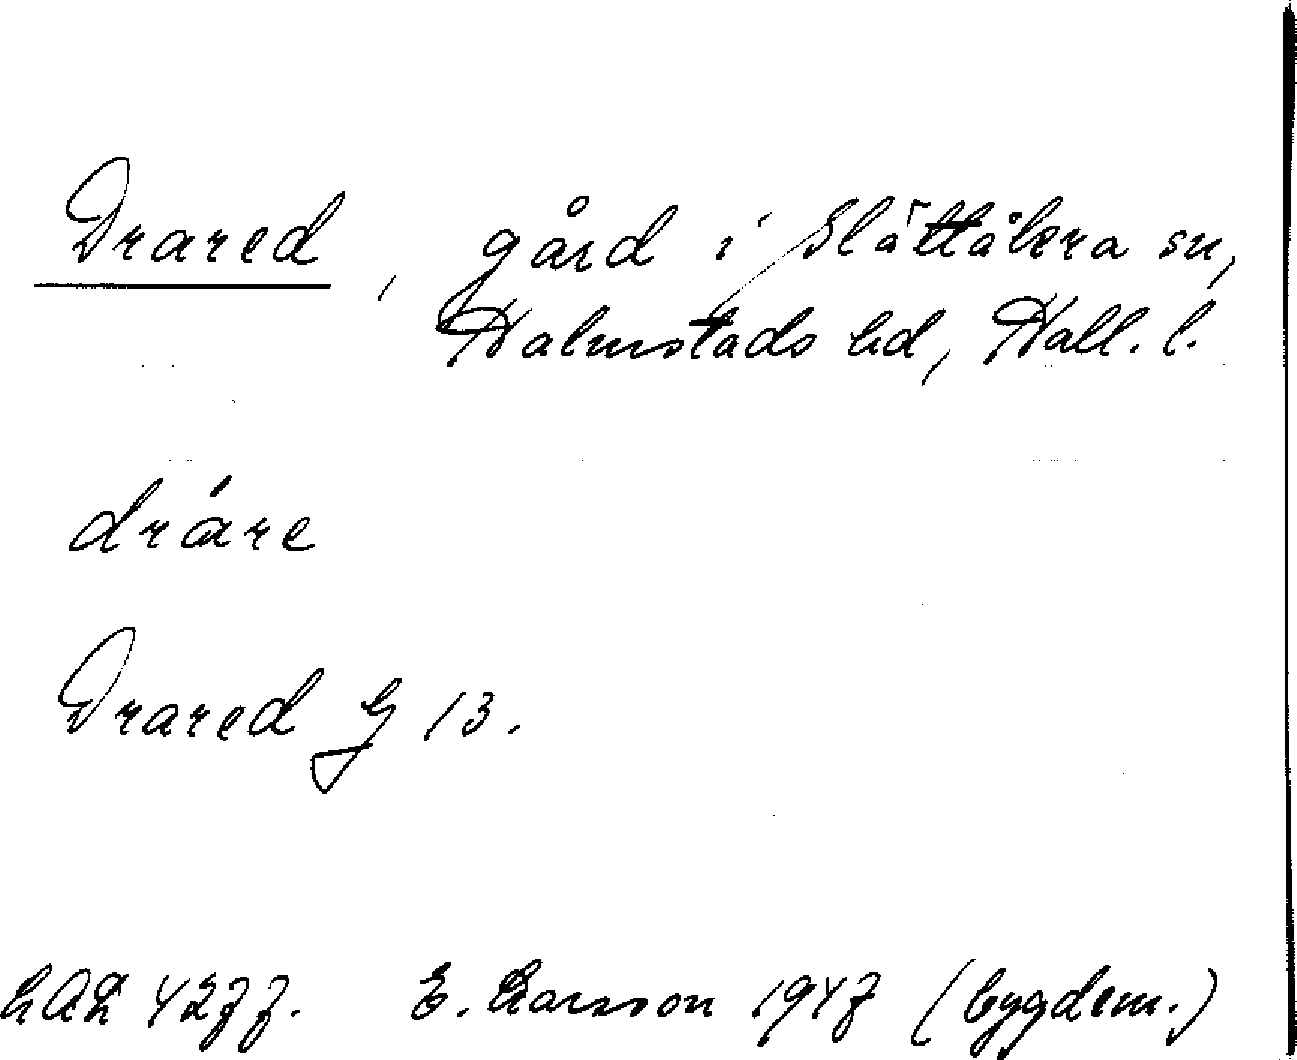 Drared, gård i Slättåkra sn,
Halmstads hd, Hall. l.
dráre
Drared G 13.
LAL 4277. E. Larsson 1947 (bygdem.)